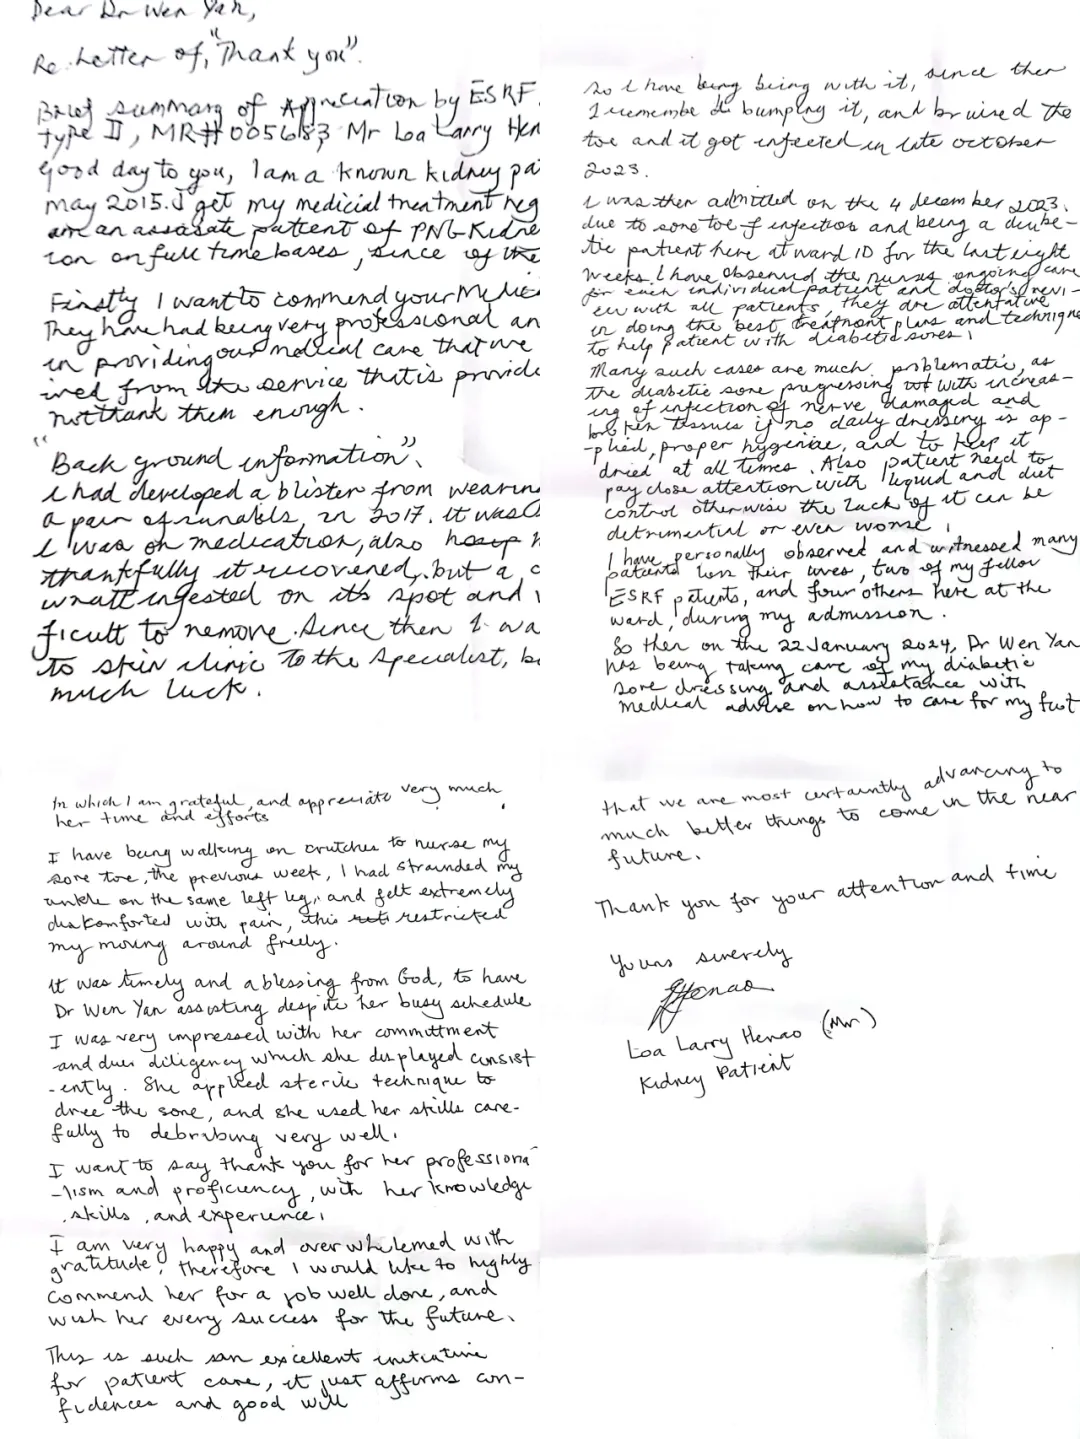 Dear Dr Wen Yan,
Re. Letter of, "Thank you".
Brief summary of Appreciation by ESRF
type II, MR# 005683 Mr Loa Larry Hen
Good day to you, I am a known kidney pa
May 2015. I get my medicial treatment reg
are an assosate patient of PNG-Kidne
ion on full time bases, since of the
Firstly I want to commend your Medic
They have had being very professional an
in providing our medical care that we
ived from the service that is provide
not thank them enough.
"Back ground information",
I had developed a blister from wearin
a pair of sandals, in 2017. It was
I was on medication, also
thankfully it recovered, but a c
wratt ingested on its spot and
ficult to remove. Since then I wa
to skin clinic to the Specialist, b
much luck.
So I have being being with it, since then
I remember bumping it, and bruised the
toe and it got infected in late october
2023.
I was then admitted on the 4 december 2023.
due to sore toe of infection and being a diabe-
tic patient here at ward 1D for the last eight
weeks. I have observed the nurses ongoing care
for each individual patient and doctor's revi-
ew with all patients, they are attentative
in doing the best treatment plans and technique
to help patient with diabetic sores,
Many such cases are much problematic, as
the diabetic sore progressing with increas-
ing of infection of nerve damaged and
broken tissues if no daily dressing is ap-
-plied, proper hygeniae, and to keep it
dried at all times. Also patient need to
pay close attention with liquid and diet
control otherwise the lack of it can be
detrimental or even worse,
I have personally observed and witnessed many
patients loss their lives, two of my fellow
ESRF patients, and four others here at the
ward, during my admission.
So then on the 22 January 2024, Dr Wen Yan
has being taking care of my diabetic
sore dressing and assistance with
medical advise on how to care for my foot
In which I am grateful, and appreciate very much,
her time and efforts
I have being walking on crutches to nurse my
sore toe, the previous week, I had strainded my
ankle on the same left leg, and felt extremely
diskomforted with pain, this restricted
my moving around freely.
It was timely and a blessing from God, to have
Dr Wen Yan assisting despite her busy schedule
I was very impressed with her committment
and dues diligency which she displayed consist
-ently. She applied sterile technique to
dree the sore, and she used her skills care-
fully to debribing very well.
I want to say thank you for her professiona
-lism and proficiency, with her knowledge
, skills, and experience,
I am very happy and over whilemed with
gratitude, therefore I would like to highly
commend her for a job well done, and
wish her every success for the future.
This is such san excellent initiative
for patient care, it just affirms con-
fidences and good will
that we are most certaintly advancing to
much better things to come in the near
future.
Thank you for your attention and time
Yours sincerely
Loa Larry Henao (Mr)
Kidney Patient